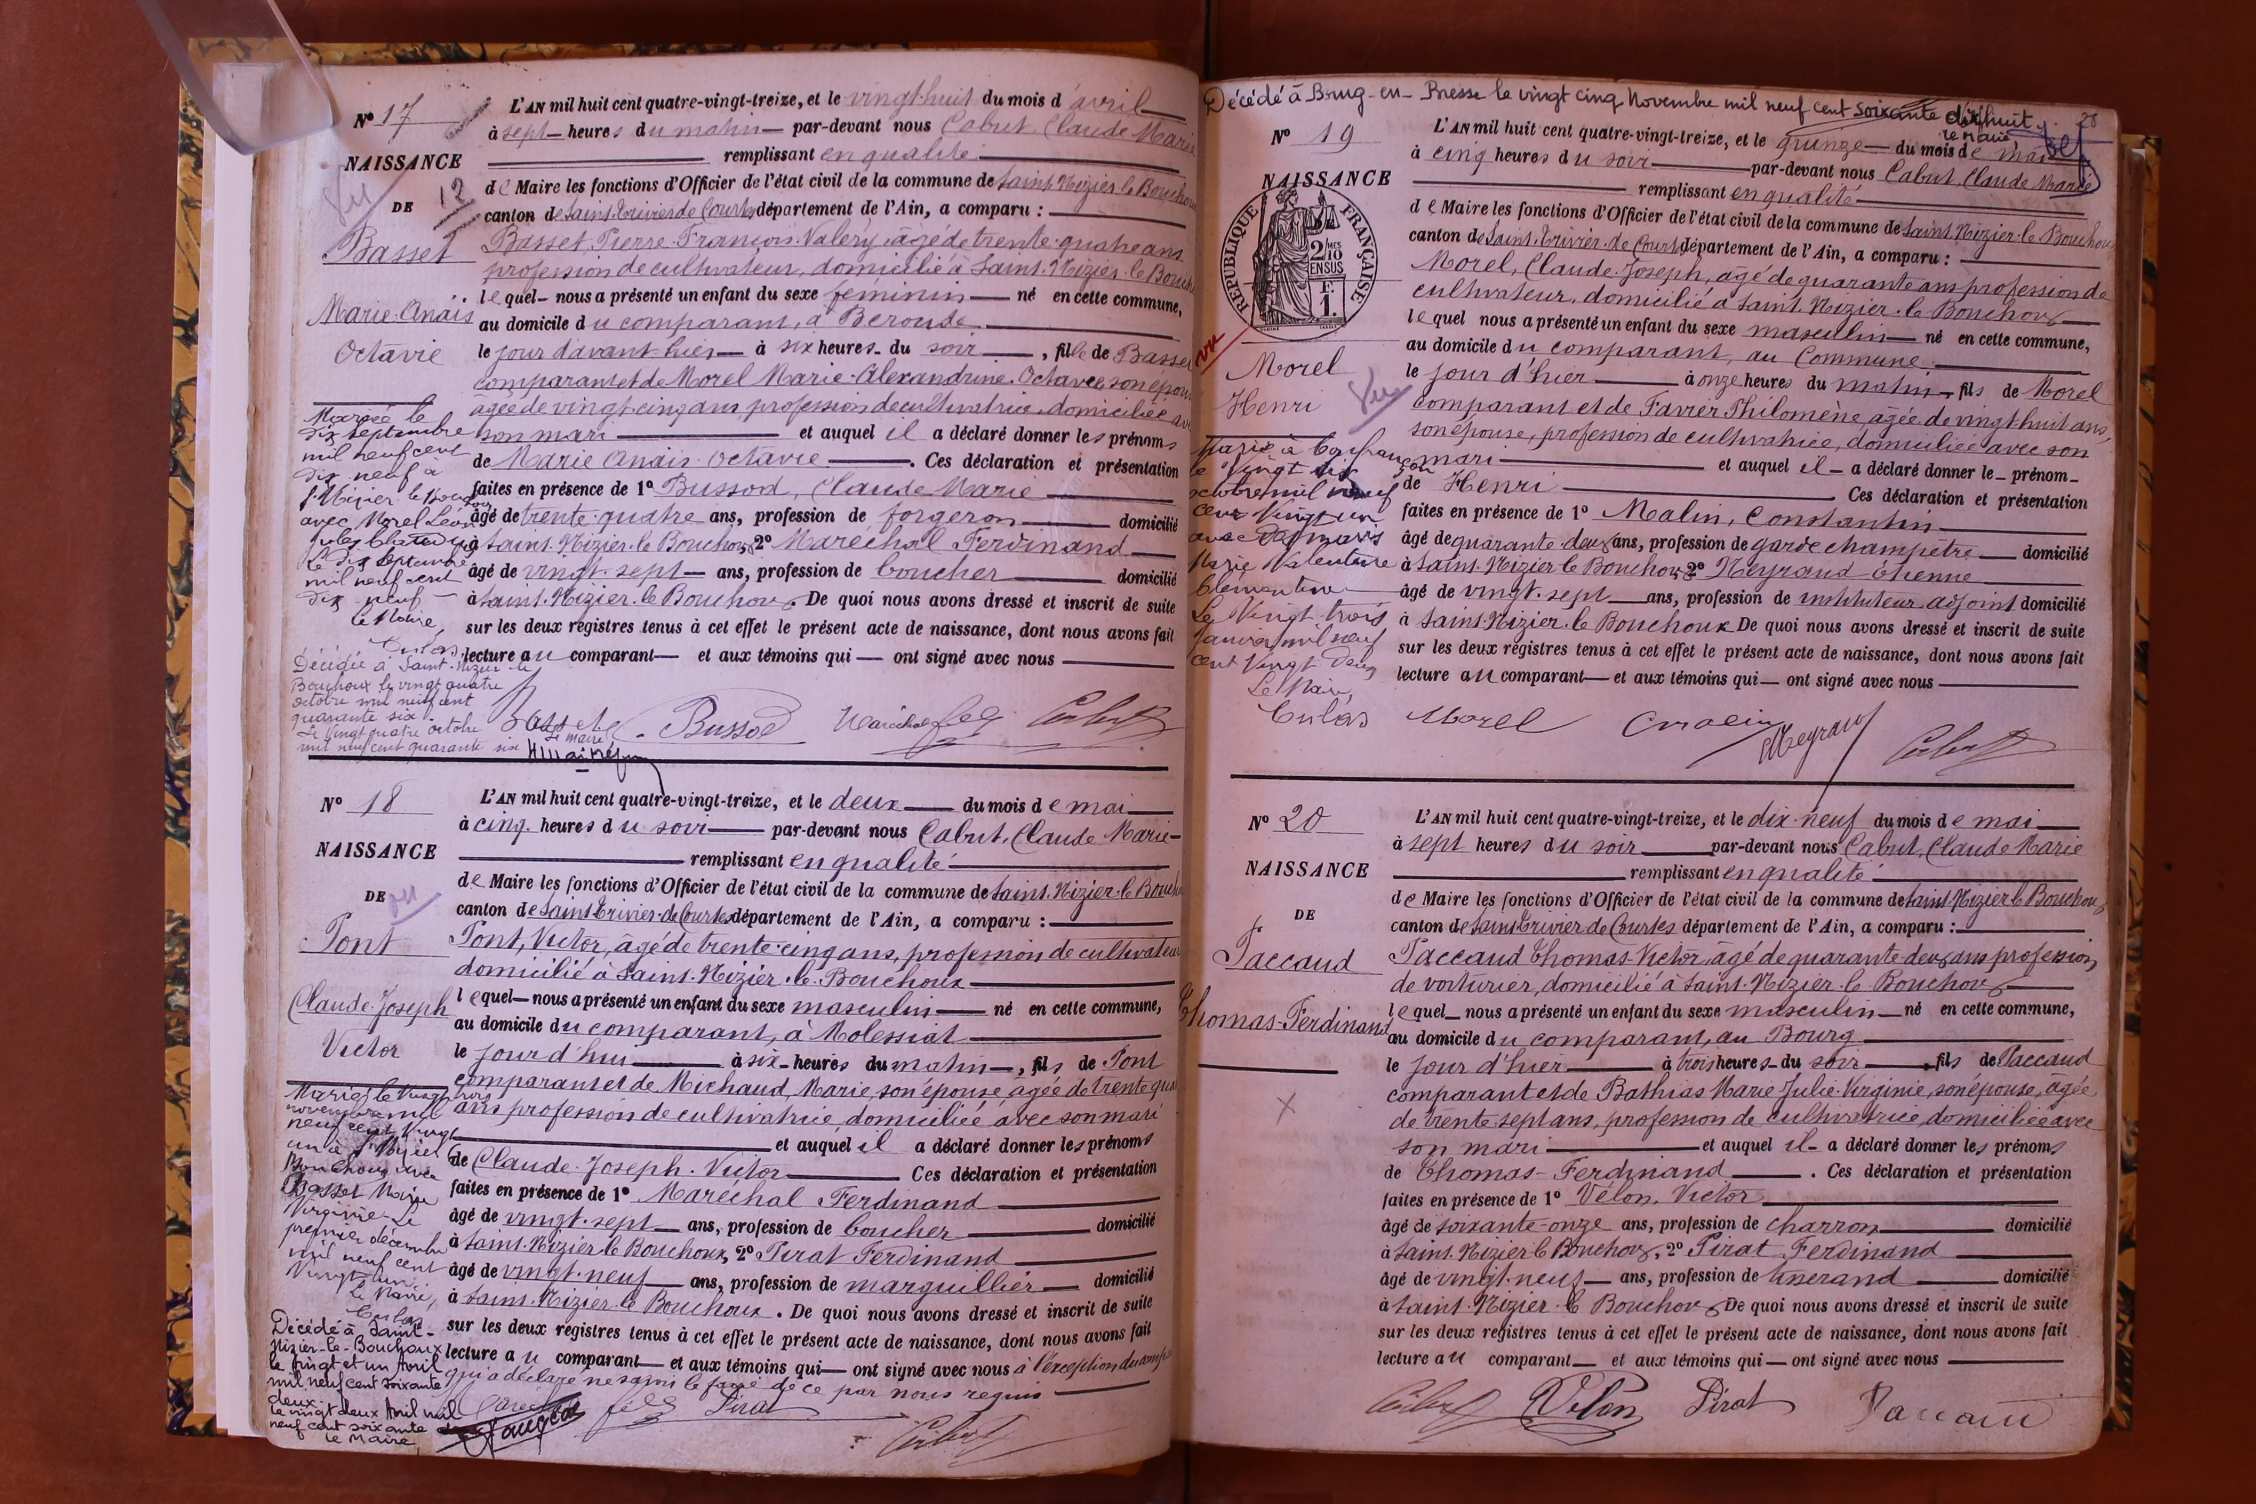 Nº 17
NAISSANCE
DE
12
Basset
Marie-Anaïs
Octavie
L'AN mil huit cent quatre-vingt-treize, et le vingt-huit du mois d'avril
à sept heures du matin par-devant nous Cabut, Claude Marie
remplissant en qualité
de Maire les fonctions d'Officier de l'état civil de la commune de Saint-Nizier-le-Bouchoux
canton de Saint-Trivier-de-Courtes département de l'Ain, a comparu :
Basset, Pierre-François-Valery, âgé de trente-quatre ans
profession de cultivateur, domicilié à Saint-Nizier-le-Bouchoux
lequel nous a présenté un enfant du sexe féminin né en cette commune,
au domicile du comparant, à Beroude
le jour d'avant-hier à six heures du soir, fille de Basset
comparant et de Morel Marie-Alexandrine-Octavie son épouse
âgée de vingt-cinq ans profession de cultivatrice, domiciliée avec
son mari et auquel il a déclaré donner les prénoms
de Marie Anaïs-Octavie. Ces déclaration et présentation
faites en présence de 1º Bussod, Claude Marie
âgé de trente-quatre ans, profession de forgeron domicilié
à Saint-Nizier-le-Bouchoux, 2º Maréchal Ferdinand
âgé de vingt-sept ans, profession de boucher domicilié
à Saint-Nizier-le-Bouchoux. De quoi nous avons dressé et inscrit de suite
sur les deux registres tenus à cet effet le présent acte de naissance, dont nous avons fait
lecture au comparant et aux témoins qui ont signé avec nous
Mariée le
dix septembre
mil neuf cent
dix neuf à
St Nizier le Bouchoux
avec Morel Léon
Jules Claudius
Le dix septembre
mil neuf cent
dix neuf
Le Maire,
Culas
Décédée à Saint-Nizier-le
Bouchoux le vingt quatre
octobre mil neuf cent
quarante six.
Le vingt quatre octobre
mil neuf cent quarante six
Le maire
Basset Bussod Maréchal fils Cabut
Nº 18
NAISSANCE
DE
vu
Pont
Claude-Joseph
Victor
L'AN mil huit cent quatre-vingt-treize, et le deux du mois de mai
à cinq heures du soir par-devant nous Cabut, Claude Marie
remplissant en qualité
de Maire les fonctions d'Officier de l'état civil de la commune de Saint-Nizier-le-Bouchoux
canton de Saint-Trivier-de-Courtes département de l'Ain, a comparu :
Pont, Victor, âgé de trente-cinq ans, profession de cultivateur
domicilié à Saint-Nizier-le-Bouchoux
lequel nous a présenté un enfant du sexe masculin né en cette commune,
au domicile du comparant, à Molessiat
le jour d'hui à six heures du matin, fils de Pont
comparant et de Michaud, Marie, son épouse, agée de trente quatre
ans profession de cultivatrice, domiciliée avec son mari
et auquel il a déclaré donner les prénoms
de Claude-Joseph-Victor Ces déclaration et présentation
faites en présence de 1º Maréchal Ferdinand
âgé de vingt-sept ans, profession de boucher domicilié
à Saint-Nizier-le-Bouchoux, 2º Pirat Ferdinand
âgé de vingt-neuf ans, profession de marguillier domicilié
à Saint-Nizier-le-Bouchoux. De quoi nous avons dressé et inscrit de suite
sur les deux registres tenus à cet effet le présent acte de naissance, dont nous avons fait
lecture au comparant et aux témoins qui ont signé avec nous à l'exception du comp
qui a déclaré ne savoir le faire de ce par nous requis
Marié le vingt trois
novembre mil
neuf cent vingt
un à St Nizier le
Bouchoux avec
Basset Marie
Virginie. Le
premier décembre
mil neuf cent
vingt-un
Le Maire,
Culas
Décédé à Saint-
Nizier-le-Bouchoux
le vingt et un Avril
mil neuf cent soixante
deux
Le vingt deux Avril mil
neuf cent soixante deux
Le Maire,
Maréchal fils Pirat Cabut
Décédé à Bourg-en-Bresse le vingt cinq Novembre mil neuf cent soixante dix huit.
Le Maire,
28
Nº 19
NAISSANCE
RÉPUBLIQUE FRANÇAISE
2/10
MES
EN SUS
F.
1.
vu
Morel
Henri
Vu
L'AN mil huit cent quatre-vingt-treize, et le quinze du mois de mai
à cinq heures du soir par-devant nous Cabut, Claude Marie
remplissant en qualité
de Maire les fonctions d'Officier de l'état civil de la commune de Saint-Nizier-le-Bouchoux
canton de Saint-Trivier-de-Courtes département de l'Ain, a comparu :
Morel, Claude-Joseph, âgé de quarante ans profession de
cultivateur, domicilié à Saint-Nizier-le-Bouchoux
lequel nous a présenté un enfant du sexe masculin né en cette commune,
au domicile du comparant, au Commune
le jour d'hier à onze heures du matin, fils de Morel
comparant et de Favier Philomène, agée de vingt-huit ans,
son épouse, profession de cultivatrice, domiciliée avec son
mari et auquel il a déclaré donner le prénom
de Henri Ces déclaration et présentation
faites en présence de 1º Malin, Constantin
âgé de quarante-deux ans, profession de garde champêtre domicilié
à Saint-Nizier-le-Bouchoux, 2º Meyraud Etienne
âgé de vingt-sept ans, profession de instituteur adjoint domicilié
à Saint-Nizier-le-Bouchoux De quoi nous avons dressé et inscrit de suite
sur les deux registres tenus à cet effet le présent acte de naissance, dont nous avons fait
lecture au comparant et aux témoins qui ont signé avec nous
Marié à Confrançon
le vingt six
octobre mil neuf
cent vingt un
avec
Marie Valentine
Clémentine
Le vingt trois
Janvier mil neuf
cent vingt deux
Le Maire,
Culas
Morel Malin Meyraud Cabut
Nº 20
NAISSANCE
DE
Paccaud
Thomas-Ferdinand
L'AN mil huit cent quatre-vingt-treize, et le dix-neuf du mois de mai
à sept heures du soir par-devant nous Cabut, Claude Marie
remplissant en qualité
de Maire les fonctions d'Officier de l'état civil de la commune de Saint-Nizier-le-Bouchoux
canton de Saint-Trivier-de-Courtes département de l'Ain, a comparu :
Paccaud Thomas-Victor, âgé de quarante-deux ans profession
de voiturier, domicilié à Saint-Nizier-le-Bouchoux
lequel nous a présenté un enfant du sexe masculin né en cette commune,
au domicile du comparant, au Bourg
le jour d'hier à trois heures du soir, fils de Paccaud
comparant et de Bathias Marie Julie-Virginie, son épouse, agée
de trente-sept ans, profession de cultivatrice, domiciliée avec
son mari et auquel il a déclaré donner les prénoms
de Thomas-Ferdinand. Ces déclaration et présentation
faites en présence de 1º Vélon, Victor
âgé de soixante-onze ans, profession de charron domicilié
à Saint-Nizier-le-Bouchoux, 2º Pirat Ferdinand
âgé de vingt-neuf ans, profession de tisserand domicilié
à Saint-Nizier-le-Bouchoux De quoi nous avons dressé et inscrit de suite
sur les deux registres tenus à cet effet le présent acte de naissance, dont nous avons fait
lecture au comparant et aux témoins qui ont signé avec nous
Cabut Vélon Pirat Paccaud